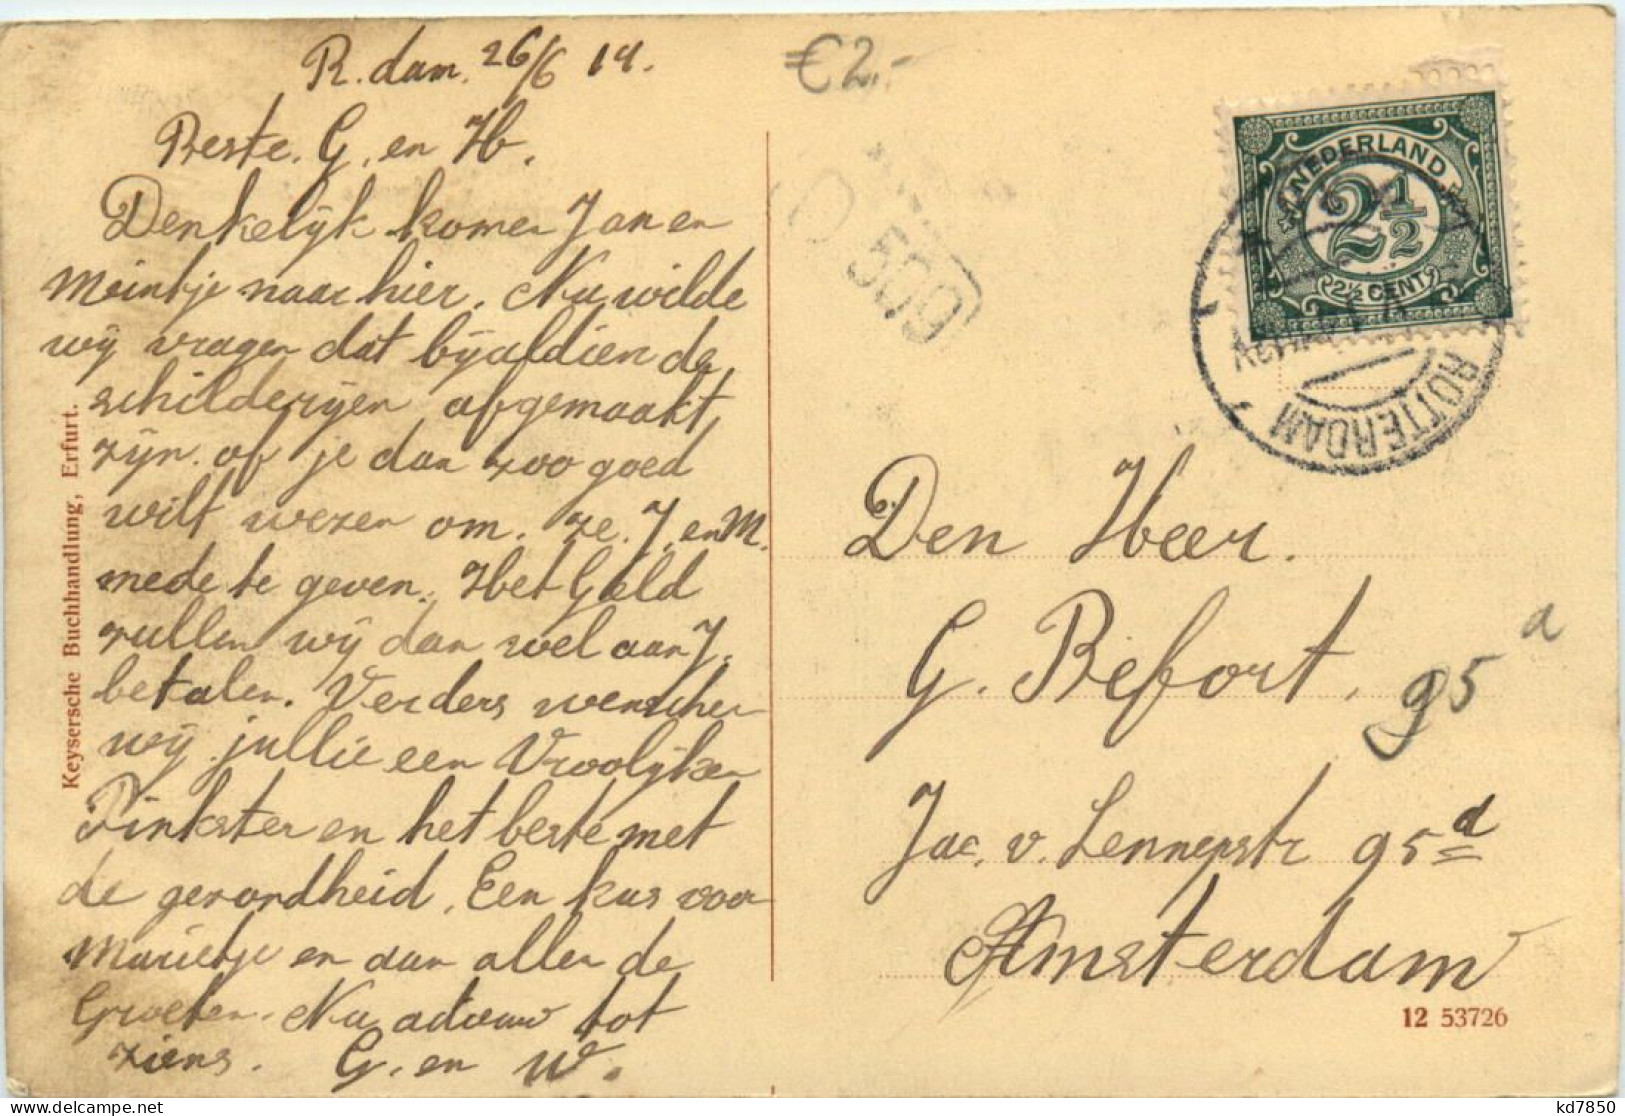 R.dam. 26/6 14.
Beste. G. en H.
Denkelijk komen Jan en
Meintje naar hier. Nu wilde
wij vragen dat bijaldien de
schilderijen afgemaakt
zijn. of je dan zoo goed
wilt wezen om. ze. J. en M.
mede te geven. Het Geld
zullen wij dan wel aan J.
betalen. Verders wenschen
wij jullie een Vroolijken
Pinkster en het beste met
de gezondheid. Een kus voor
Marietje en aan allen de
Groeten. Nu adieuw tot
ziens. G. en W.
Keysersche Buchhandlung, Erfurt.
€2.-
O 509
NEDERLAND
2 1/2
2½ CENT
ROTTERDAM
Den Heer.
G. Befort.
95 a
Jac. v. Lennepstr 95 d
Amsterdam
12 53726
kd7850